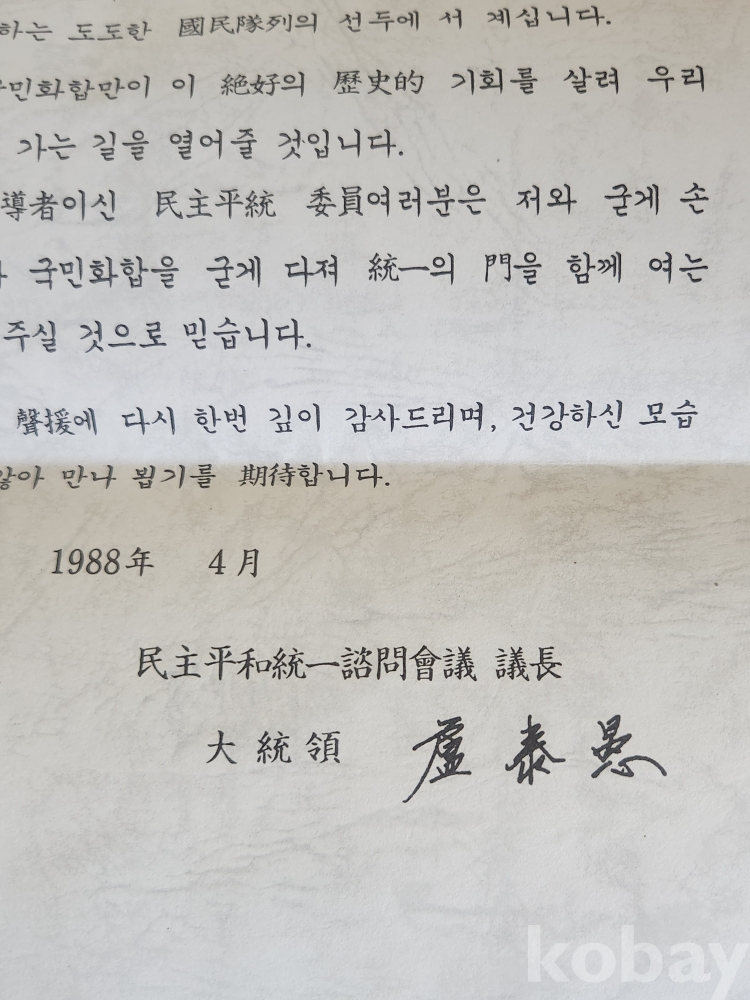 하는 도도한 國民隊列의 선두에 서 계십니다.
민화합만이 이 絶好의 歷史的 기회를 살려 우리
가는 길을 열어줄 것입니다.
導者이신 民主平統 委員여러분은 저와 굳게 손
국민화합을 굳게 다져 統一의 門을 함께 여는
주실 것으로 믿습니다.
聲援에 다시 한번 깊이 감사드리며, 건강하신 모습
않아 만나 뵙기를 期待합니다.
1988年 4月
民主平和統一諮問會議 議長
大統領 盧泰愚
kobay